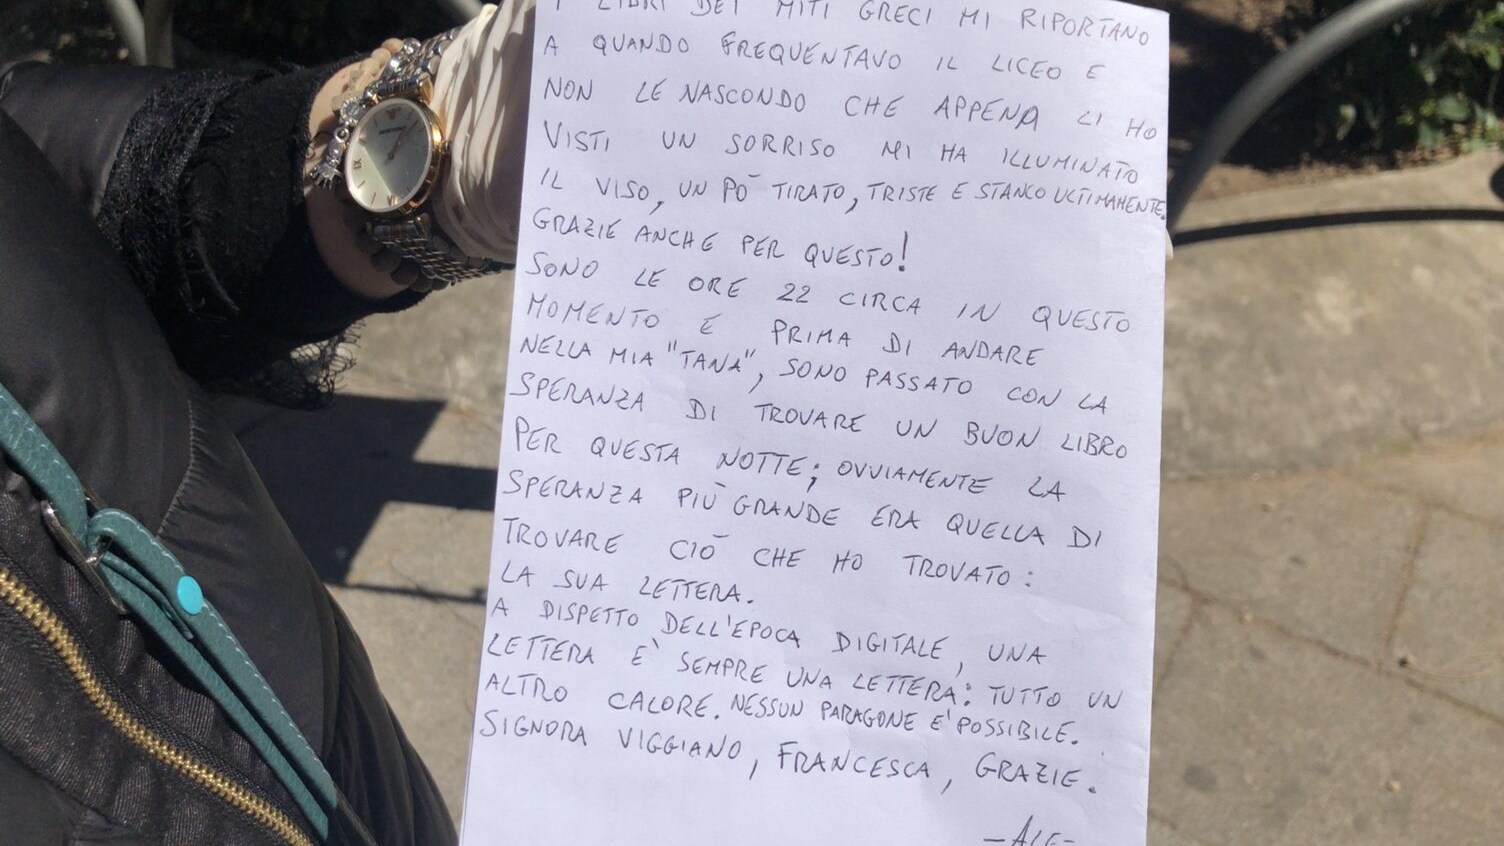 I LIBRI DEI MITI GRECI MI RIPORTANO
A QUANDO FREQUENTAVO IL LICEO E
NON LE NASCONDO CHE APPENA LI HO
VISTI UN SORRISO MI HA ILLUMINATO
IL VISO, UN PO' TIRATO, TRISTE E STANCO ULTIMAMENTE.
GRAZIE ANCHE PER QUESTO!
SONO LE ORE 22 CIRCA IN QUESTO
MOMENTO E PRIMA DI ANDARE
NELLA MIA "TANA", SONO PASSATO CON LA
SPERANZA DI TROVARE UN BUON LIBRO
PER QUESTA NOTTE; OVVIAMENTE LA
SPERANZA PIÙ GRANDE ERA QUELLA DI
TROVARE CIÒ CHE HO TROVATO:
LA SUA LETTERA.
A DISPETTO DELL'EPOCA DIGITALE, UNA
LETTERA E' SEMPRE UNA LETTERA: TUTTO UN
ALTRO CALORE. NESSUN PARAGONE E' POSSIBILE.
SIGNORA VIGGIANO, FRANCESCA, GRAZIE.
-ALE-